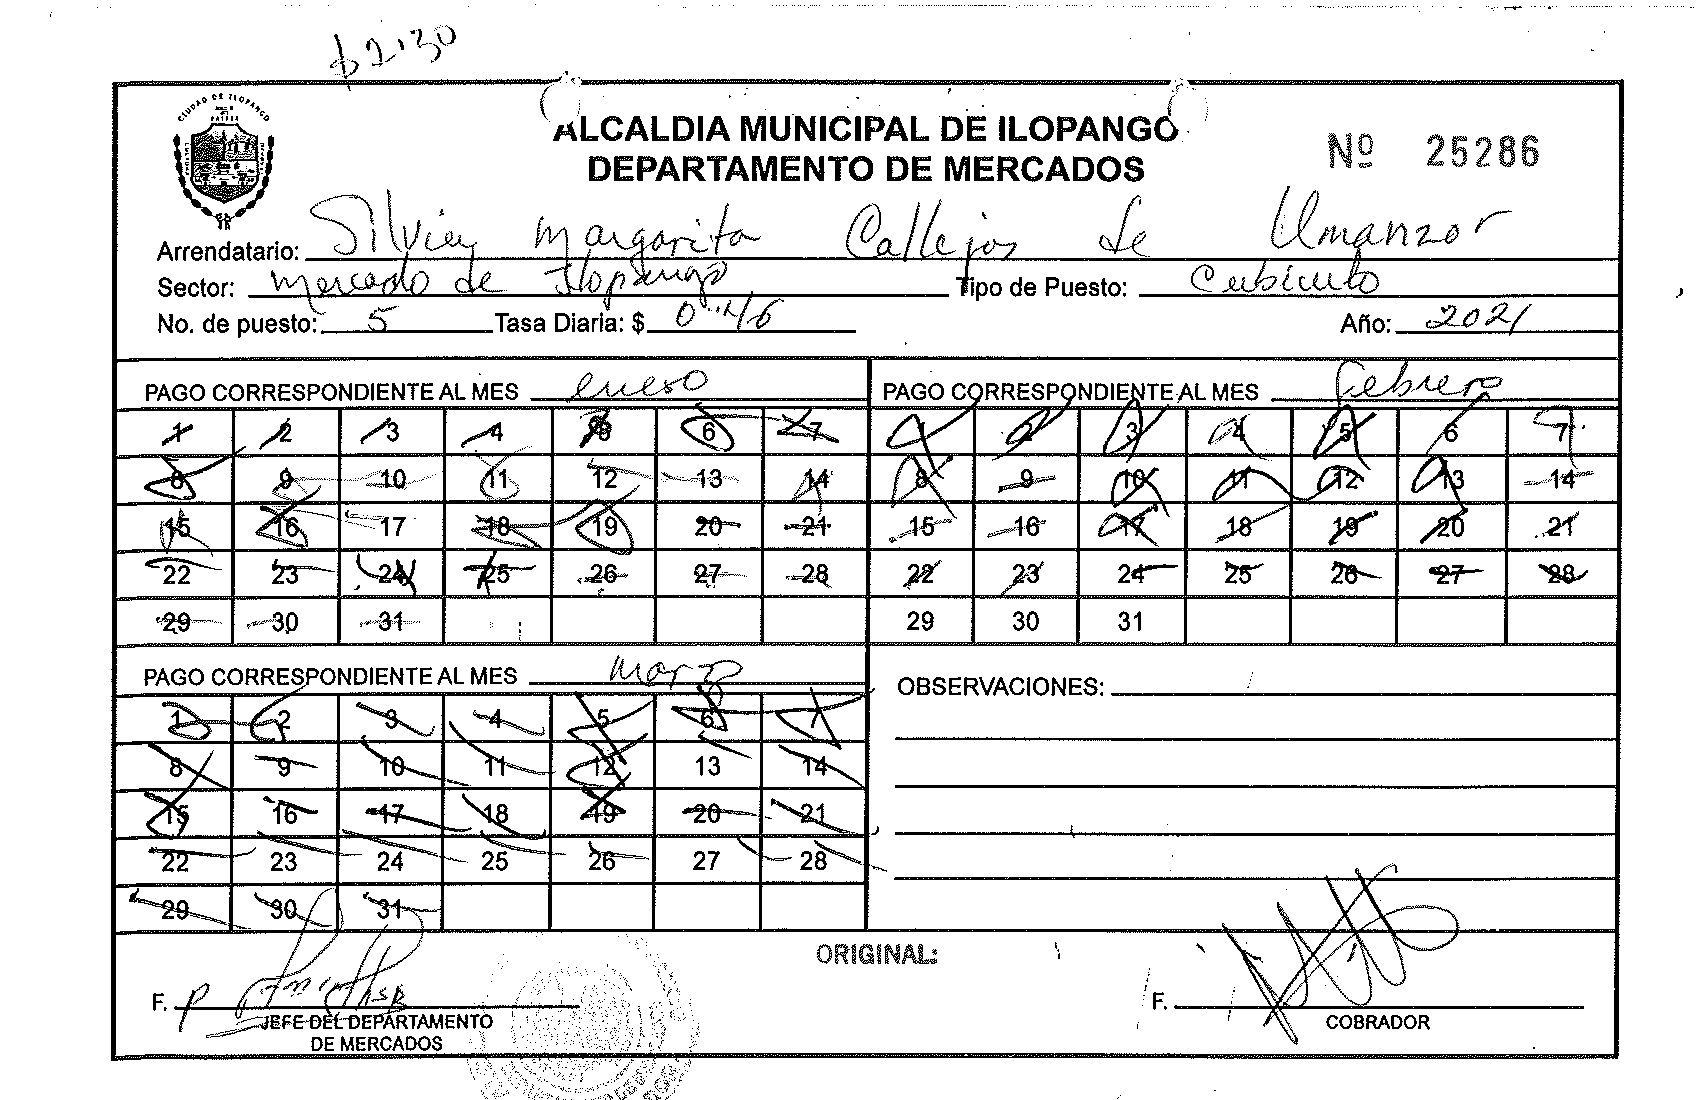 $2.30
CIUDAD DE ILOPANGO
ALCALDIA MUNICIPAL DE ILOPANGO
DEPARTAMENTO DE MERCADOS
Nº 25286
Arrendatario: Silvia Margarita Callejos de Umanzor
Sector: Mercado de Ilopango Tipo de Puesto: Cubiculo
No. de puesto: 5 Tasa Diaria: $ 0.46 Año: 2021
PAGO CORRESPONDIENTE AL MES enero
1 2 3 4 5 6 7
8 9 10 11 12 13 14
15 16 17 18 19 20 21
22 23 24 25 26 27 28
29 30 31
PAGO CORRESPONDIENTE AL MES Febrero
1 2 3 4 5 6 7
8 9 10 11 12 13 14
15 16 17 18 19 20 21
22 23 24 25 26 27 28
29 30 31
PAGO CORRESPONDIENTE AL MES Marzo
1 2 3 4 5 6 7
8 9 10 11 12 13 14
15 16 17 18 19 20 21
22 23 24 25 26 27 28
29 30 31
OBSERVACIONES:
ORIGINAL:
F. P
JEFE DEL DEPARTAMENTO
DE MERCADOS
F.
COBRADOR